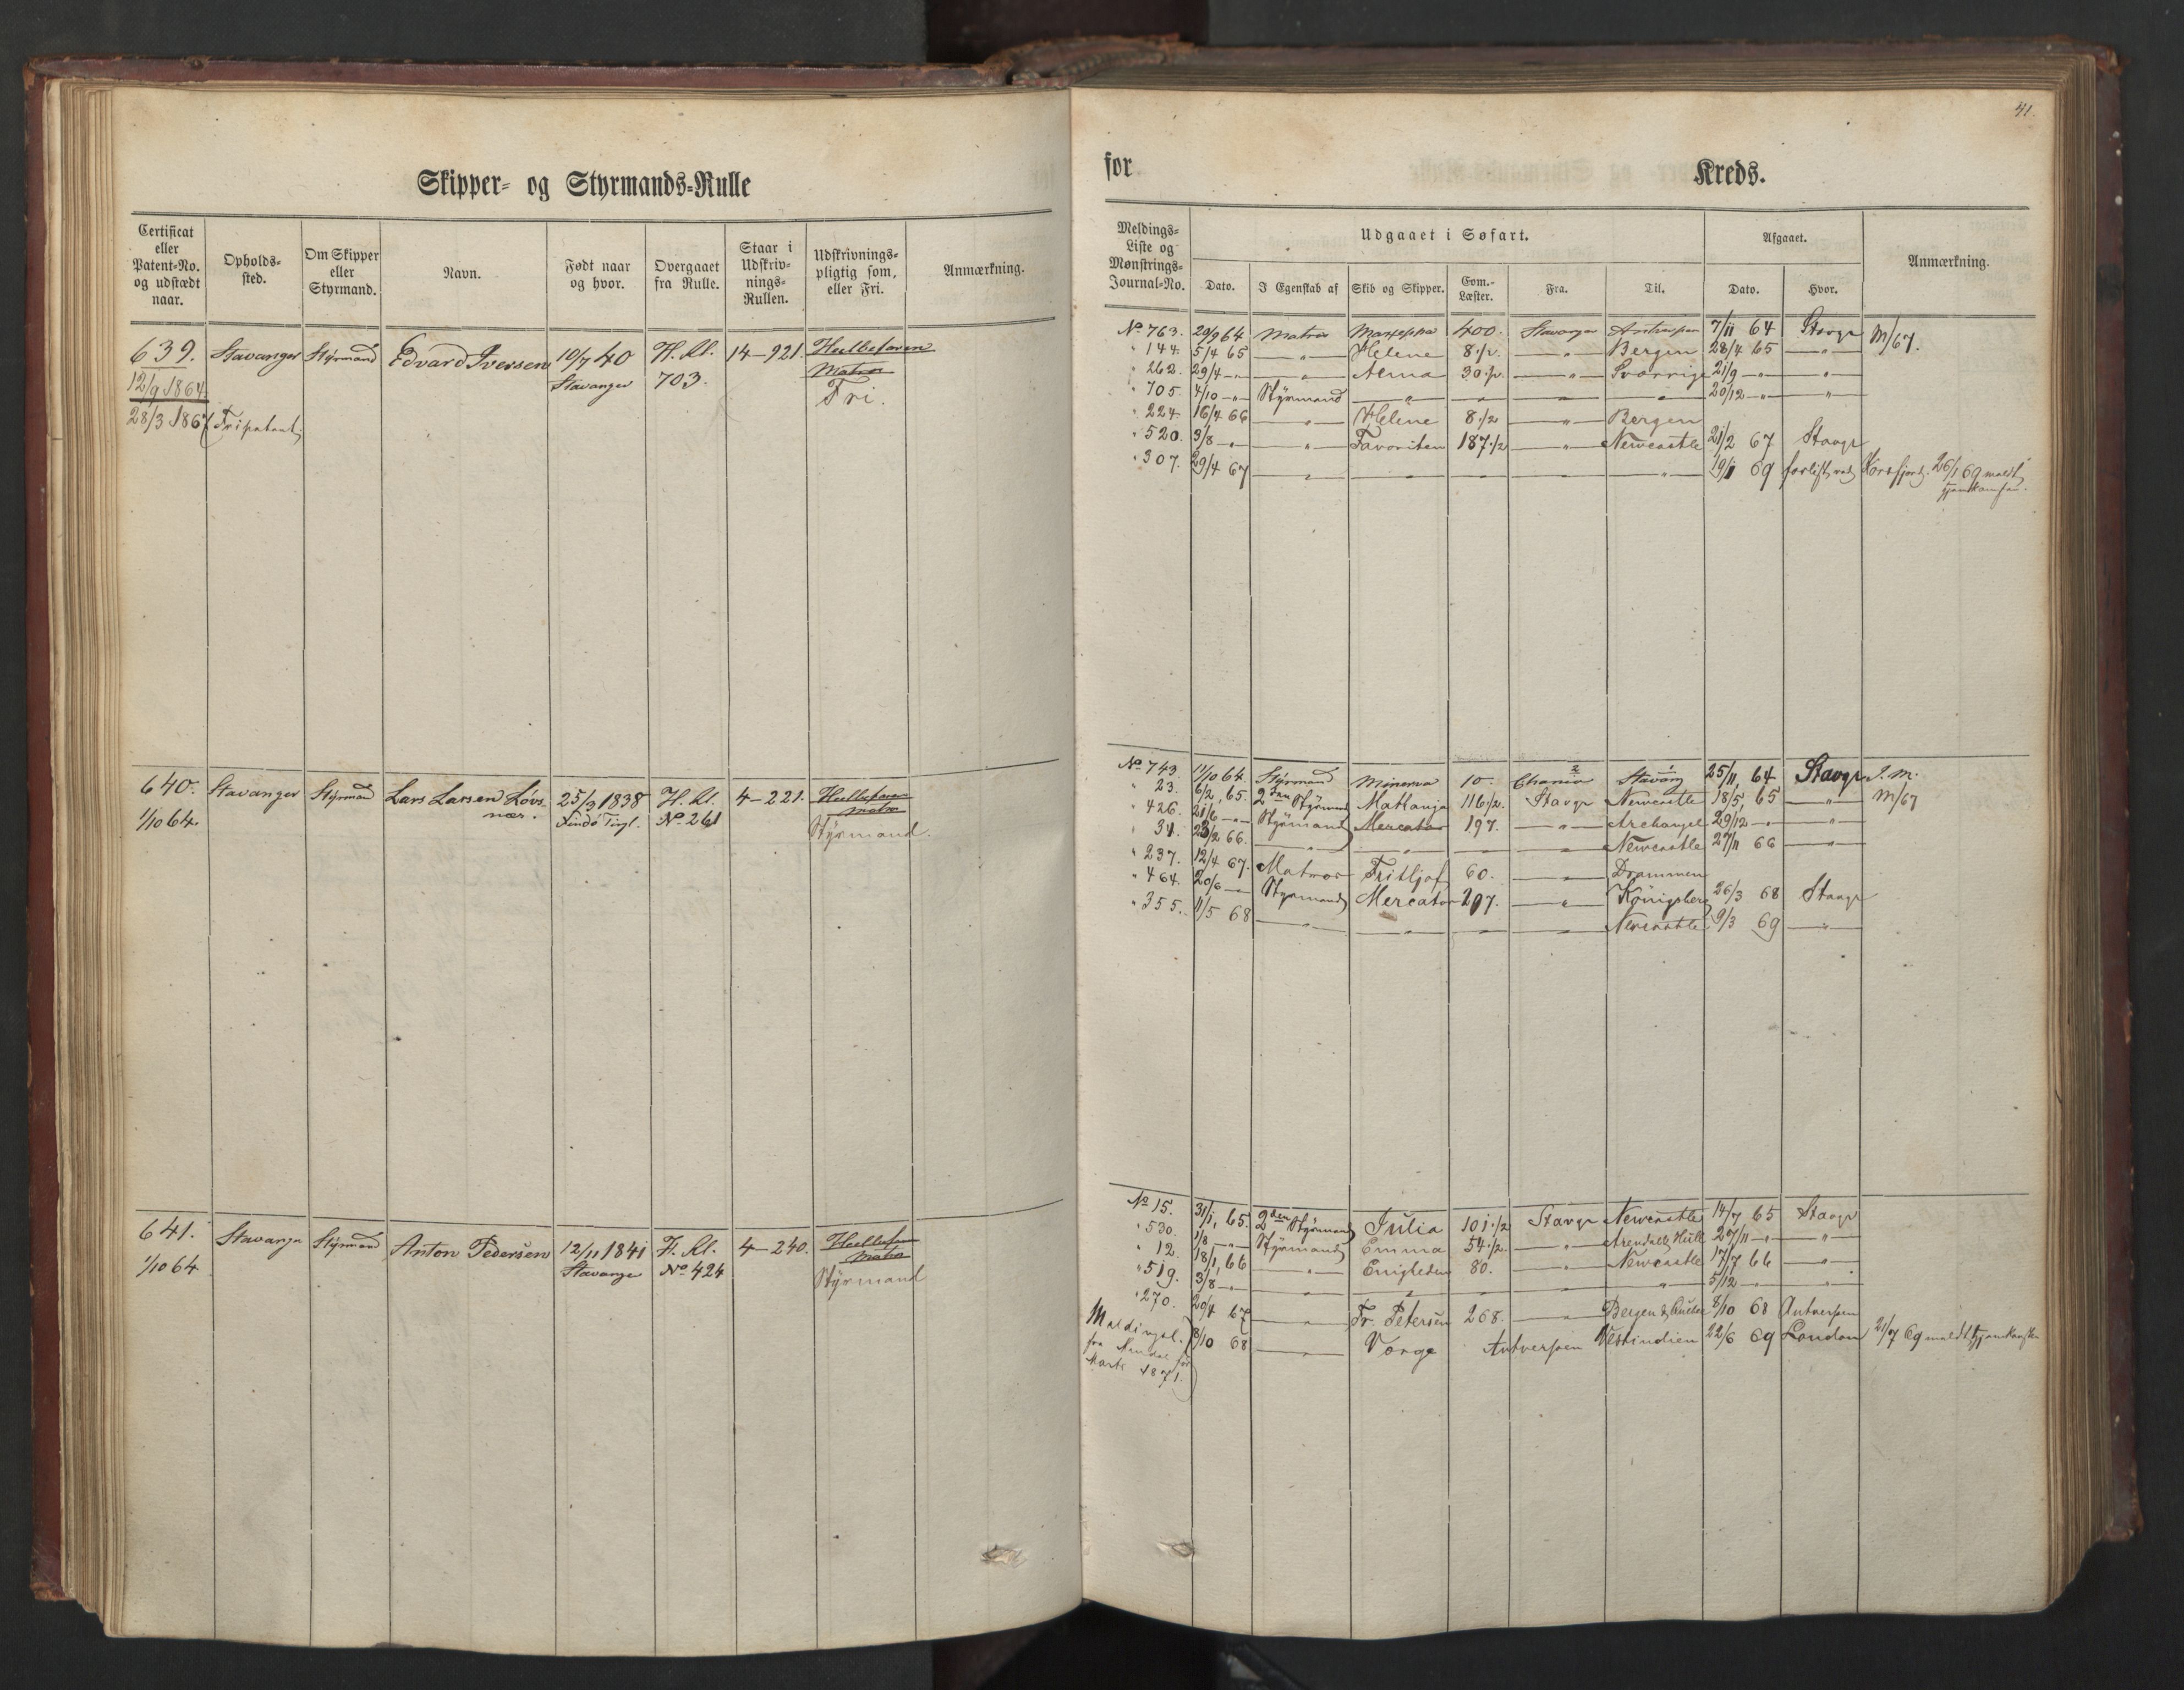 Skipper- og Styrmands-Rulle
Certificat eller Patent-No. og udstædt naar.
Opholds-sted.
Om Skipper eller Styrmand.
Navn.
Født naar og hvor.
Overgaaet fra Rulle.
Staar i Udskriv-nings-Rullen.
Udskrivnings-pligtig som, eller Fri.
Anmærkning.
639. Stavanger Styrmand Edvard Iversen 10/7 40 H. Rl. 14-921. Heelbefaren
Matros
12/9 1864 Stavanger 703. Fri.
28/3 1867 Fripatent.
640. Stavanger Styrmand Lars Larsen Lövs 25/3 1838 H. Rl. 4-221. Heelbefaren
nær. Matros
1/10 64. Findö Tingl. No 261 Styrmand.
641. Stavanger Styrmand Anton Pedersen 12/11 1841 H. Rl. 4-240. Heelbefaren
Matros
1/10 64 Stavanger No 424 Styrmand
41.
for Kreds.
Meldings-Liste og Mønstrings-Journal-No.
Udgaaet i Søfart.
Afgaaet.
Anmærkning.
Dato.
I Egenskab af
Skib og Skipper.
Com.-Læster.
Fra.
Til.
Dato.
Hvor.
No 763. 29/9 64 Matros Maseppa 400. Stavanger Antverpen 7/11 64 Stavgr M/67.
" 144. 5/4 65 — " — Helene 8 1/2. — " — Bergen 28/4 65 — " —
" 262. 29/4 — " — — " — Alma 30 1/2. — " — Sverrige 21/9 — " — — " —
" 705. 4/10 — " — Styrmand — " — — " — — " — 20/12 — " — — " —
" 224. 16/4 66 — " — Helene 8 1/2 — " — Bergen
" 520. 3/8 — " — — " — Favoriten 187 1/2 — " — Newcastle 21/2 67 Stavgr
" 307. 29/4 67 — " — — " — — " — — " — 19/1 69 forlist ved Korsfjord. 26/1 69 meldt
hjemkomsten.
No 743. 11/10 64. Styrmand Minerva 10. Chania Stavang 25/11, 64 Stavgr I. M.
" 23. 6/2, 65. 2den Styrmand Mathanja 116 1/2. Stavgr Newcastle 18/5, 65 — " — M/67
" 426. 21/6 — " — Styrmand Mercator 197. — " — Archangel 29/12 — " — — " —
" 31. 23/2 66. — " — — " — — " — — " — Newcastle 27/11 66 — " —
" 237. 12/4 67. Matros Fritljof 60. — " — Drammen
" 464. 20/6 — " — Styrmand Mercator 197. — " — Königsberg 26/3 68 Stavgr
" 355. 11/5 68 — " — — " — — " — — " — Newcastle 9/3 69 — " —
No 15. 31/1, 65. 2den Styrmand Julia 101 1/2 Stavgr Newcastle 14/7 65 Stavgr
" 530. 1/8 — " — Styrmand Emma 54 1/2. — " — Arendal & Hull 27/11 — " — — " —
" 12. 18/1, 66 — " — Enigheden 80. — " — Newcastle 17/7 66 — " —
" 519. 3/8 — " — — " — — " — — " — — " — 5/12 — " — — " —
" 270. 20/4 67 — " — Fr. Petersen 268. — " — Bergen & 8/10 68 Antverpen
Meldingsl. 8/10 68 — " — Norge Antverpen Vestindien 22/6 69 London 21/7 69 meldt hjemkomsten
fra Mandal for
Marts 1871.